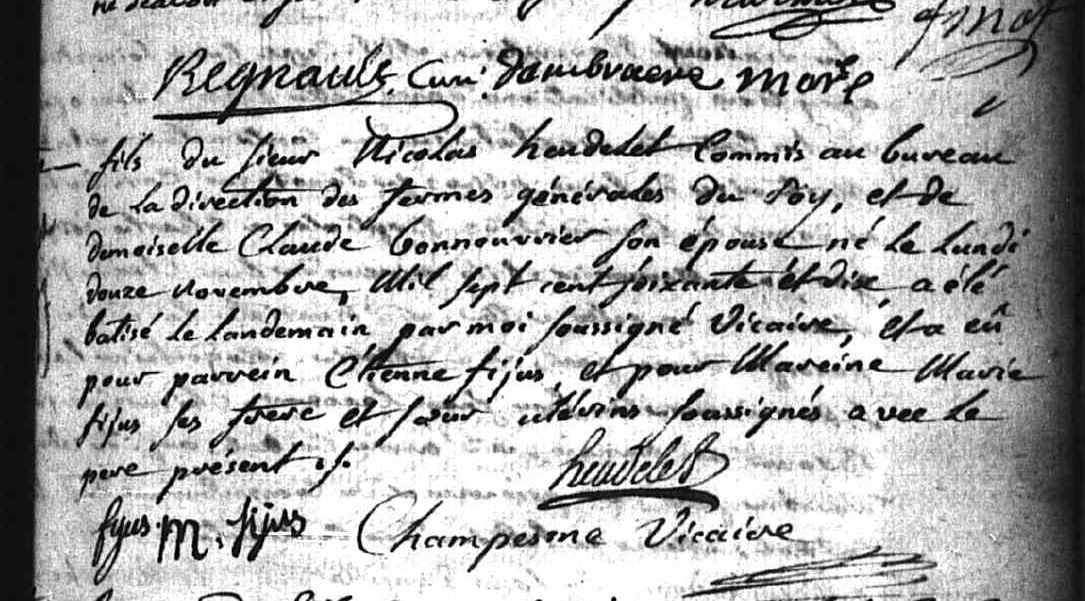 Regnault. Curé. Dambraene
fils du sieur Nicolas heudelet Commis au bureau
de la direction des fermes générales du Roy, et de
demoiselle Claude bonnouvrier son épouse né le lundi
douze novembre, Mil sept cent soixante et dix a été
batisé le landemain par moi soussigné Vicaire, et a eû
pour parrein Étienne fijus, et pour Mareine Marie
fijus ses frere et sœur utérins soussignés avec le
pere présent ./.
heudelet
fijus M. fijus Champesme Vicaire